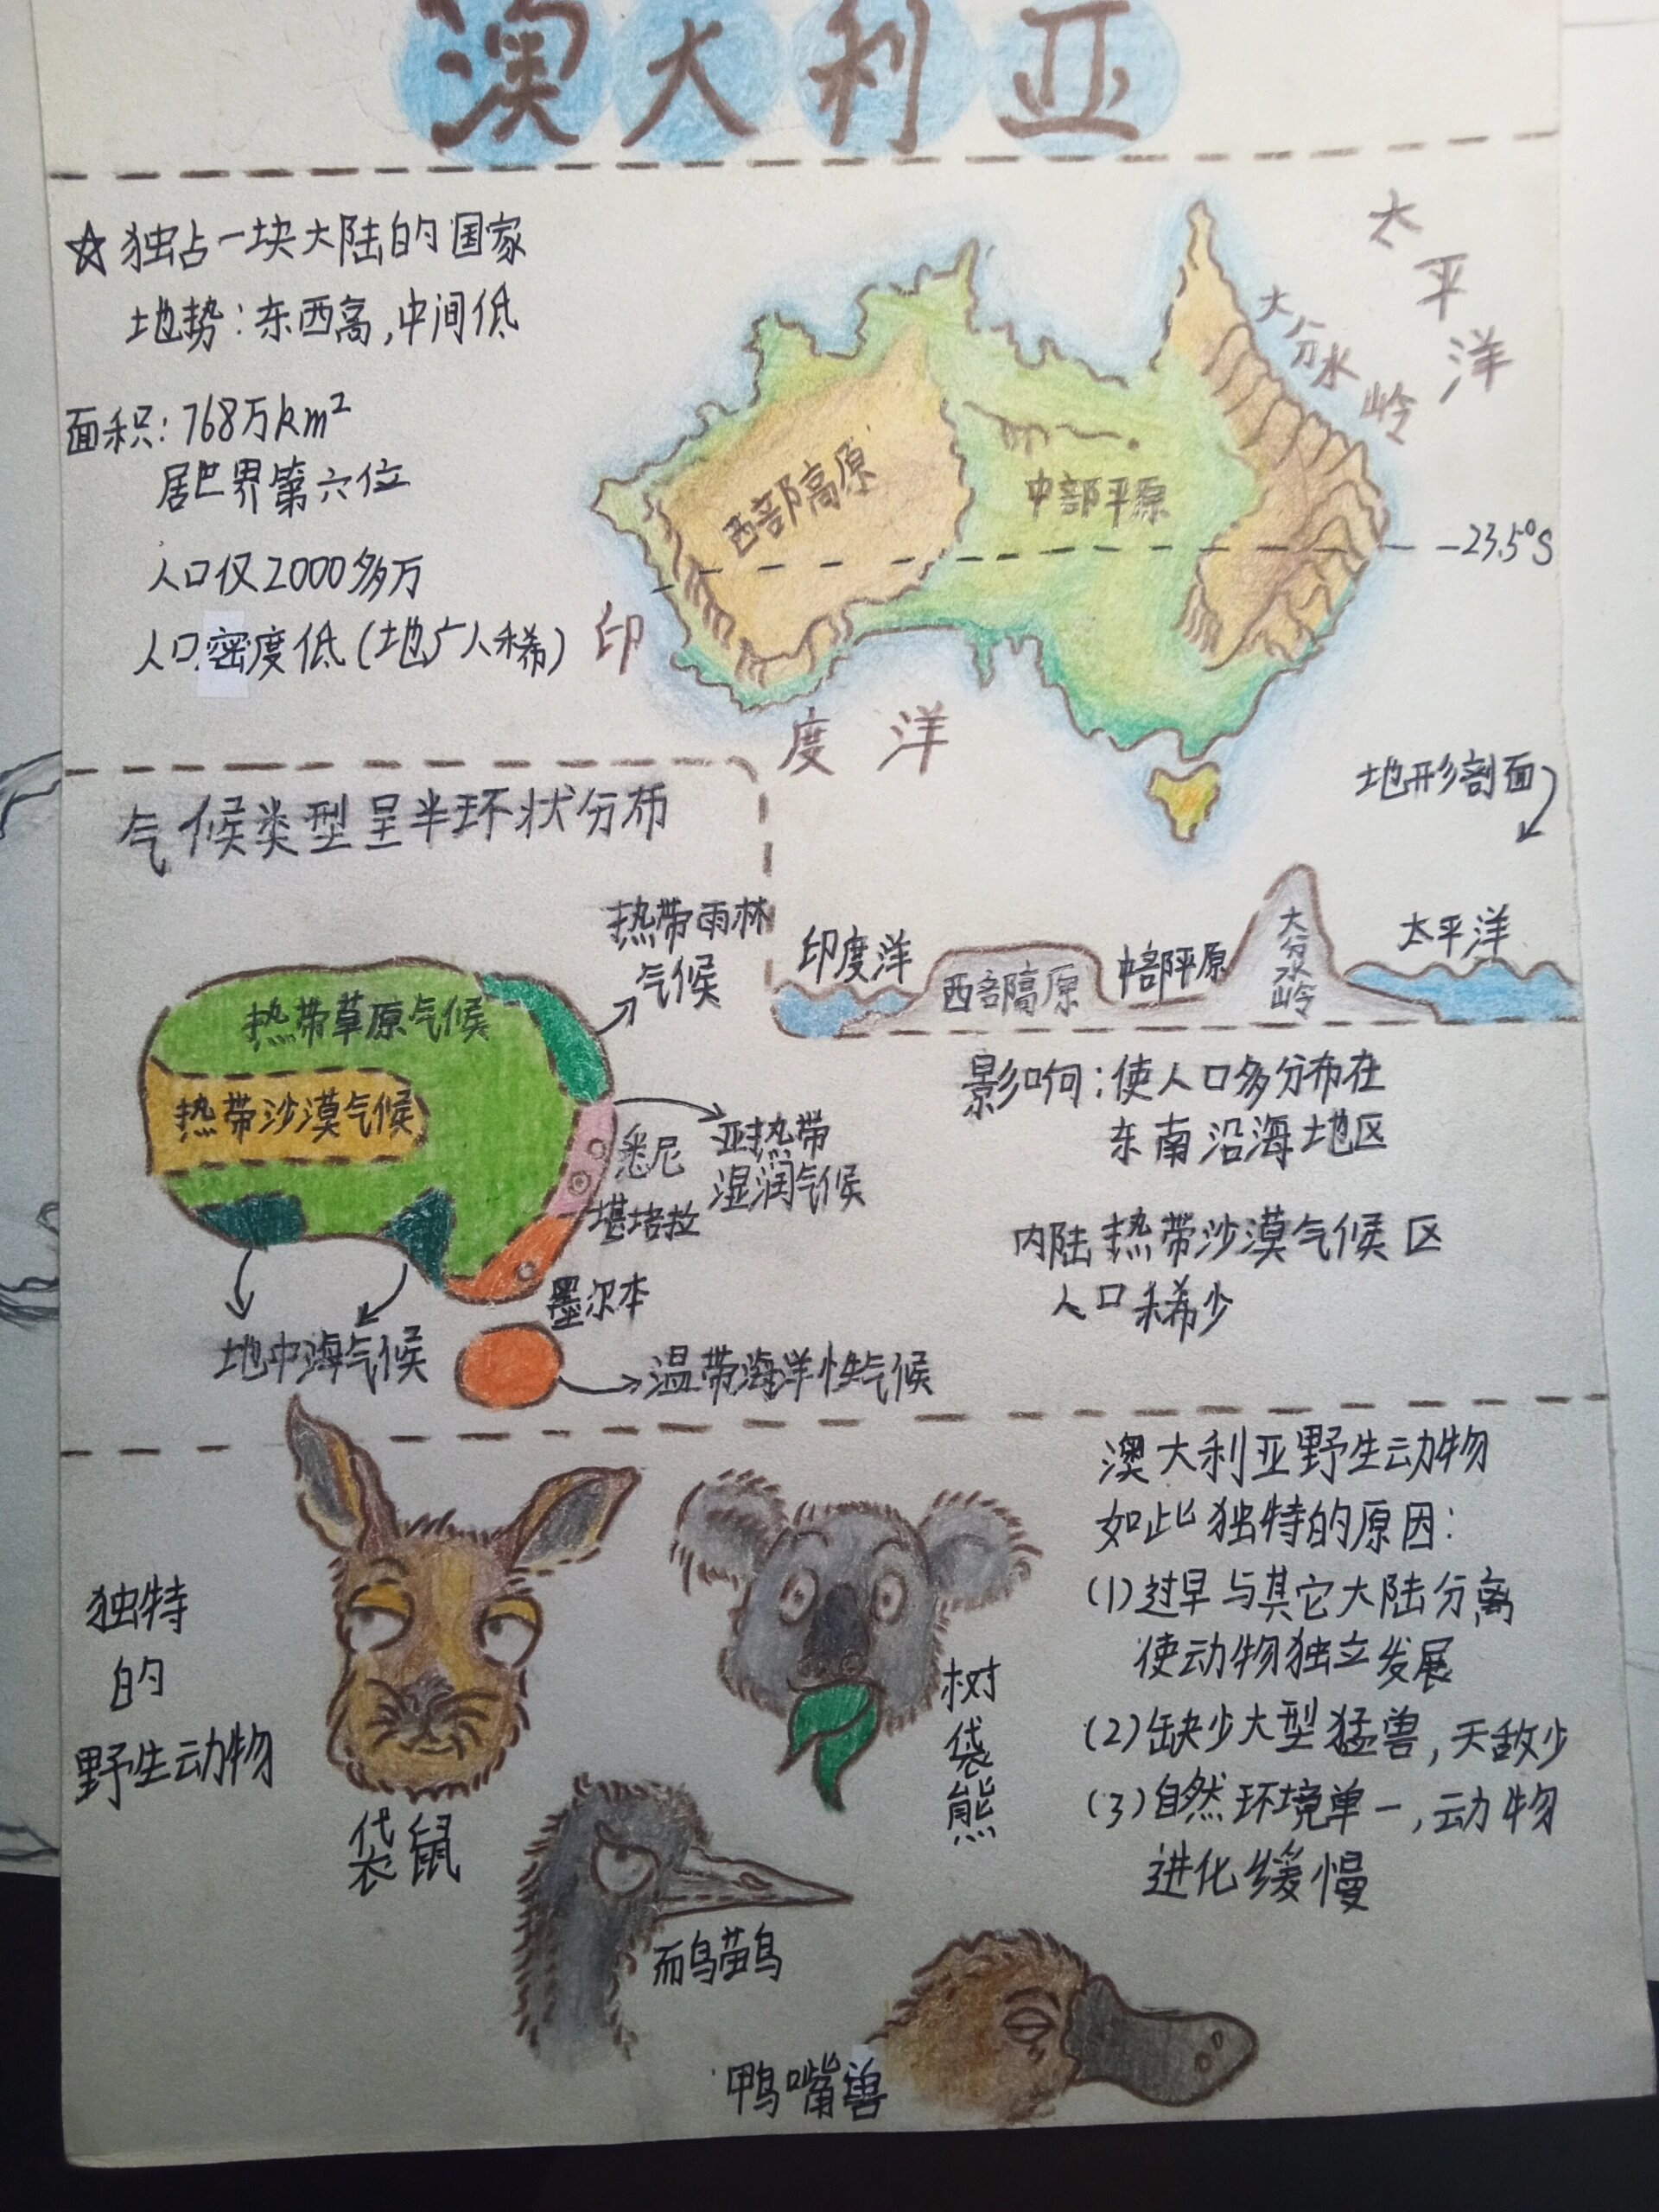 澳大利亚
☆独占一块大陆的国家
地势：东西高，中间低
面积：768万km²
居世界第六位
人口仅2000多万
人口密度低（地广人稀）
太平洋
大分水岭
西部高原
中部平原
23.5°S
印度洋
地形剖面
气候类型呈半环状分布
热带雨林
气候
热带草原气候
热带沙漠气候
悉尼
亚热带
湿润气候
堪培拉
墨尔本
地中海气候
温带海洋性气候
印度洋
西部高原
中部平原
大分水岭
太平洋
影响：使人口多分布在
东南沿海地区
内陆热带沙漠气候区
人口稀少
独特
的
野生动物
袋鼠
树袋熊
鸸鹋
鸭嘴兽
澳大利亚野生动物
如此独特的原因：
(1)过早与其它大陆分离
使动物独立发展
(2)缺少大型猛兽，天敌少
(3)自然环境单一，动物
进化缓慢